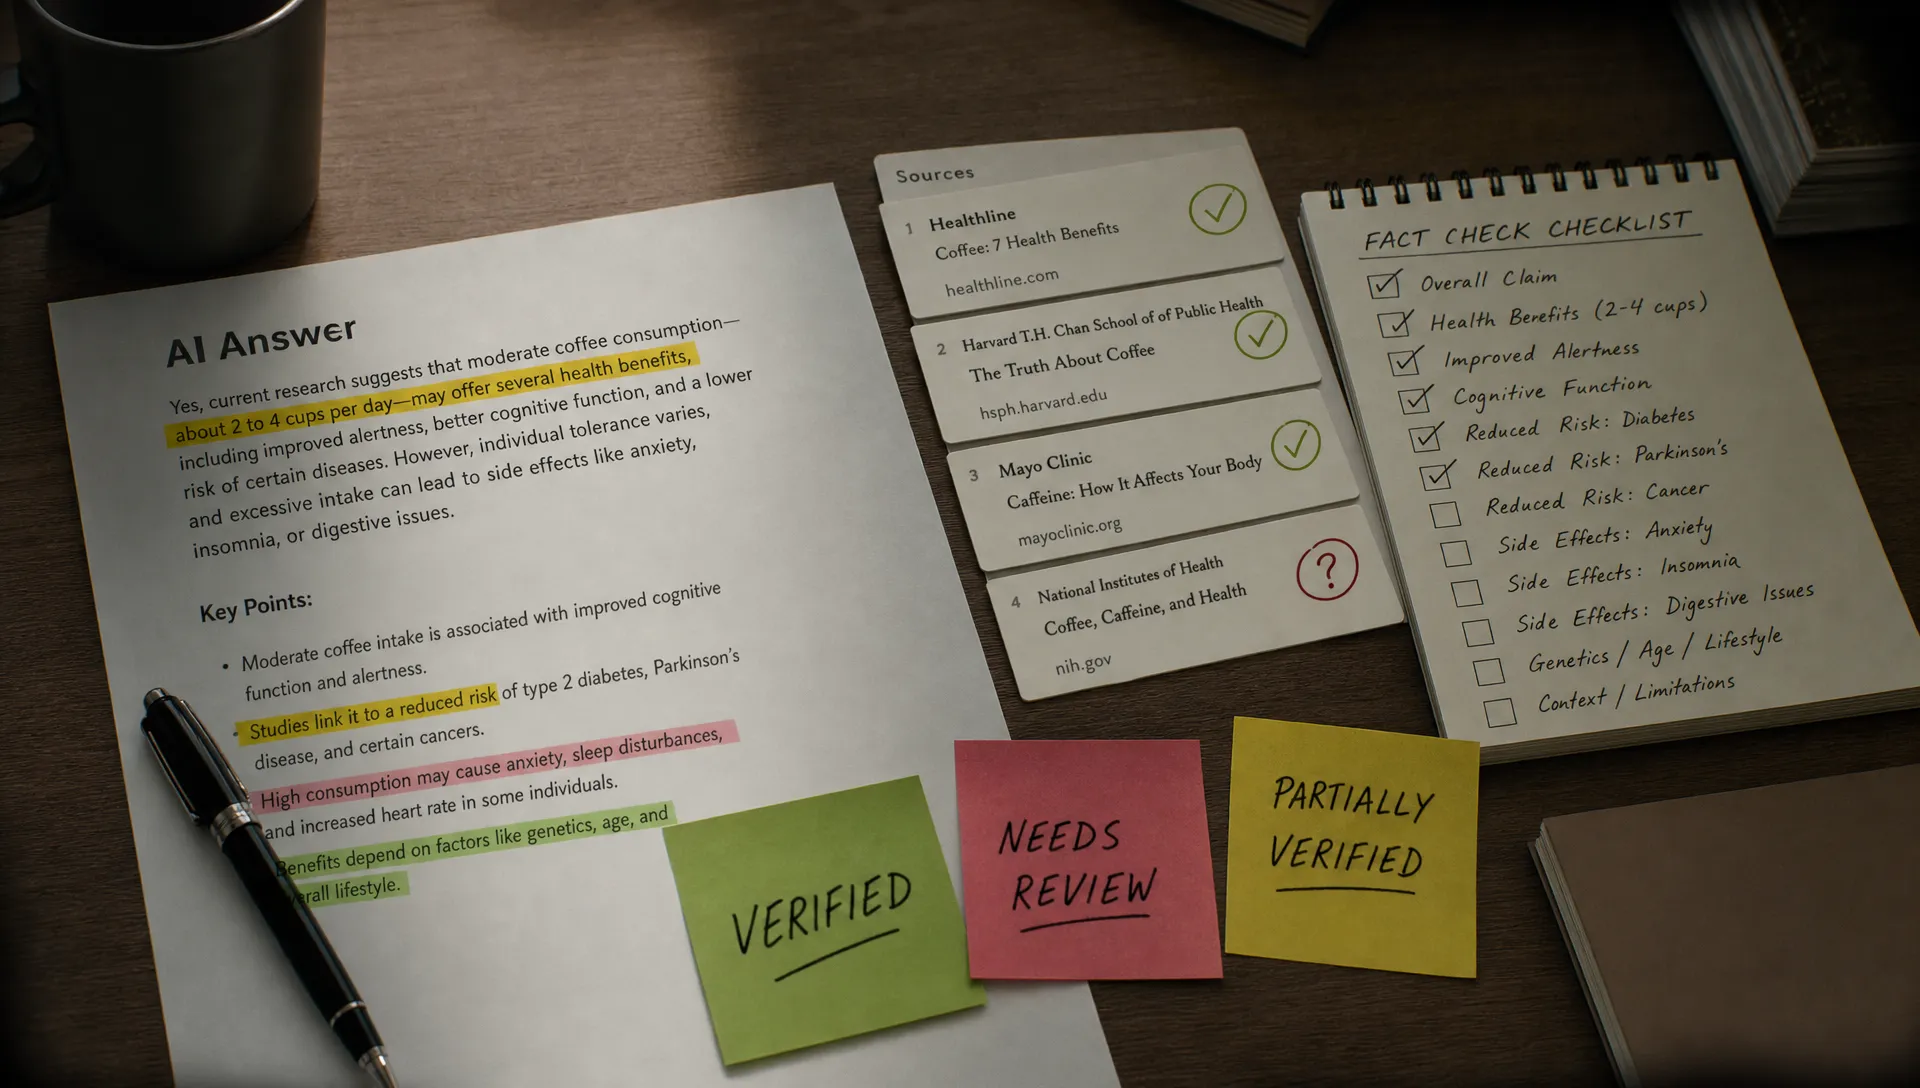 AI Answer
Yes, current research suggests that moderate coffee consumption—
about 2 to 4 cups per day—may offer several health benefits,
including improved alertness, better cognitive function, and a lower
risk of certain diseases. However, individual tolerance varies,
and excessive intake can lead to side effects like anxiety,
insomnia, or digestive issues.
Key Points:
• Moderate coffee intake is associated with improved cognitive
function and alertness.
• Studies link it to a reduced risk of type 2 diabetes, Parkinson's
disease, and certain cancers.
High consumption may cause anxiety, sleep disturbances,
and increased heart rate in some individuals.
Benefits depend on factors like genetics, age, and
erall lifestyle.
Sources
1 Healthline
Coffee: 7 Health Benefits
healthline.com
2 Harvard T.H. Chan School of of Public Health
The Truth About Coffee
hsph.harvard.edu
3 Mayo Clinic
Caffeine: How It Affects Your Body
mayoclinic.org
4 National Institutes of Health
Coffee, Caffeine, and Health
nih.gov
?
FACT CHECK CHECKLIST
Overall Claim
Health Benefits (2-4 cups)
Improved Alertness
Cognitive Function
Reduced Risk: Diabetes
Reduced Risk: Parkinson's
Reduced Risk: Cancer
Side Effects: Anxiety
Side Effects: Insomnia
Side Effects: Digestive Issues
Genetics / Age / Lifestyle
Context / Limitations
VERIFIED
NEEDS
REVIEW
PARTIALLY
VERIFIED